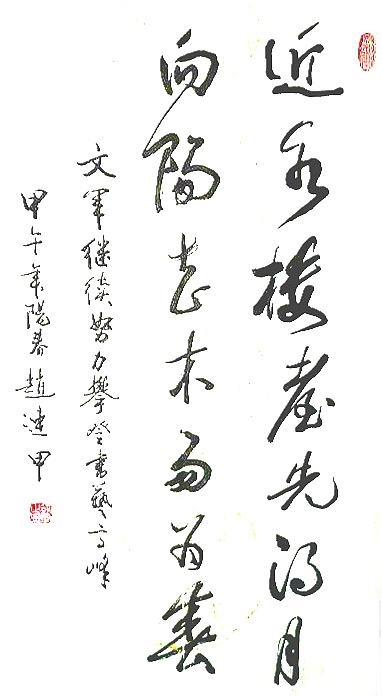 近水楼臺先得月
向陽花木易为春
文軍继续努力攀登書藝高峰
甲午年陽春趙連甲